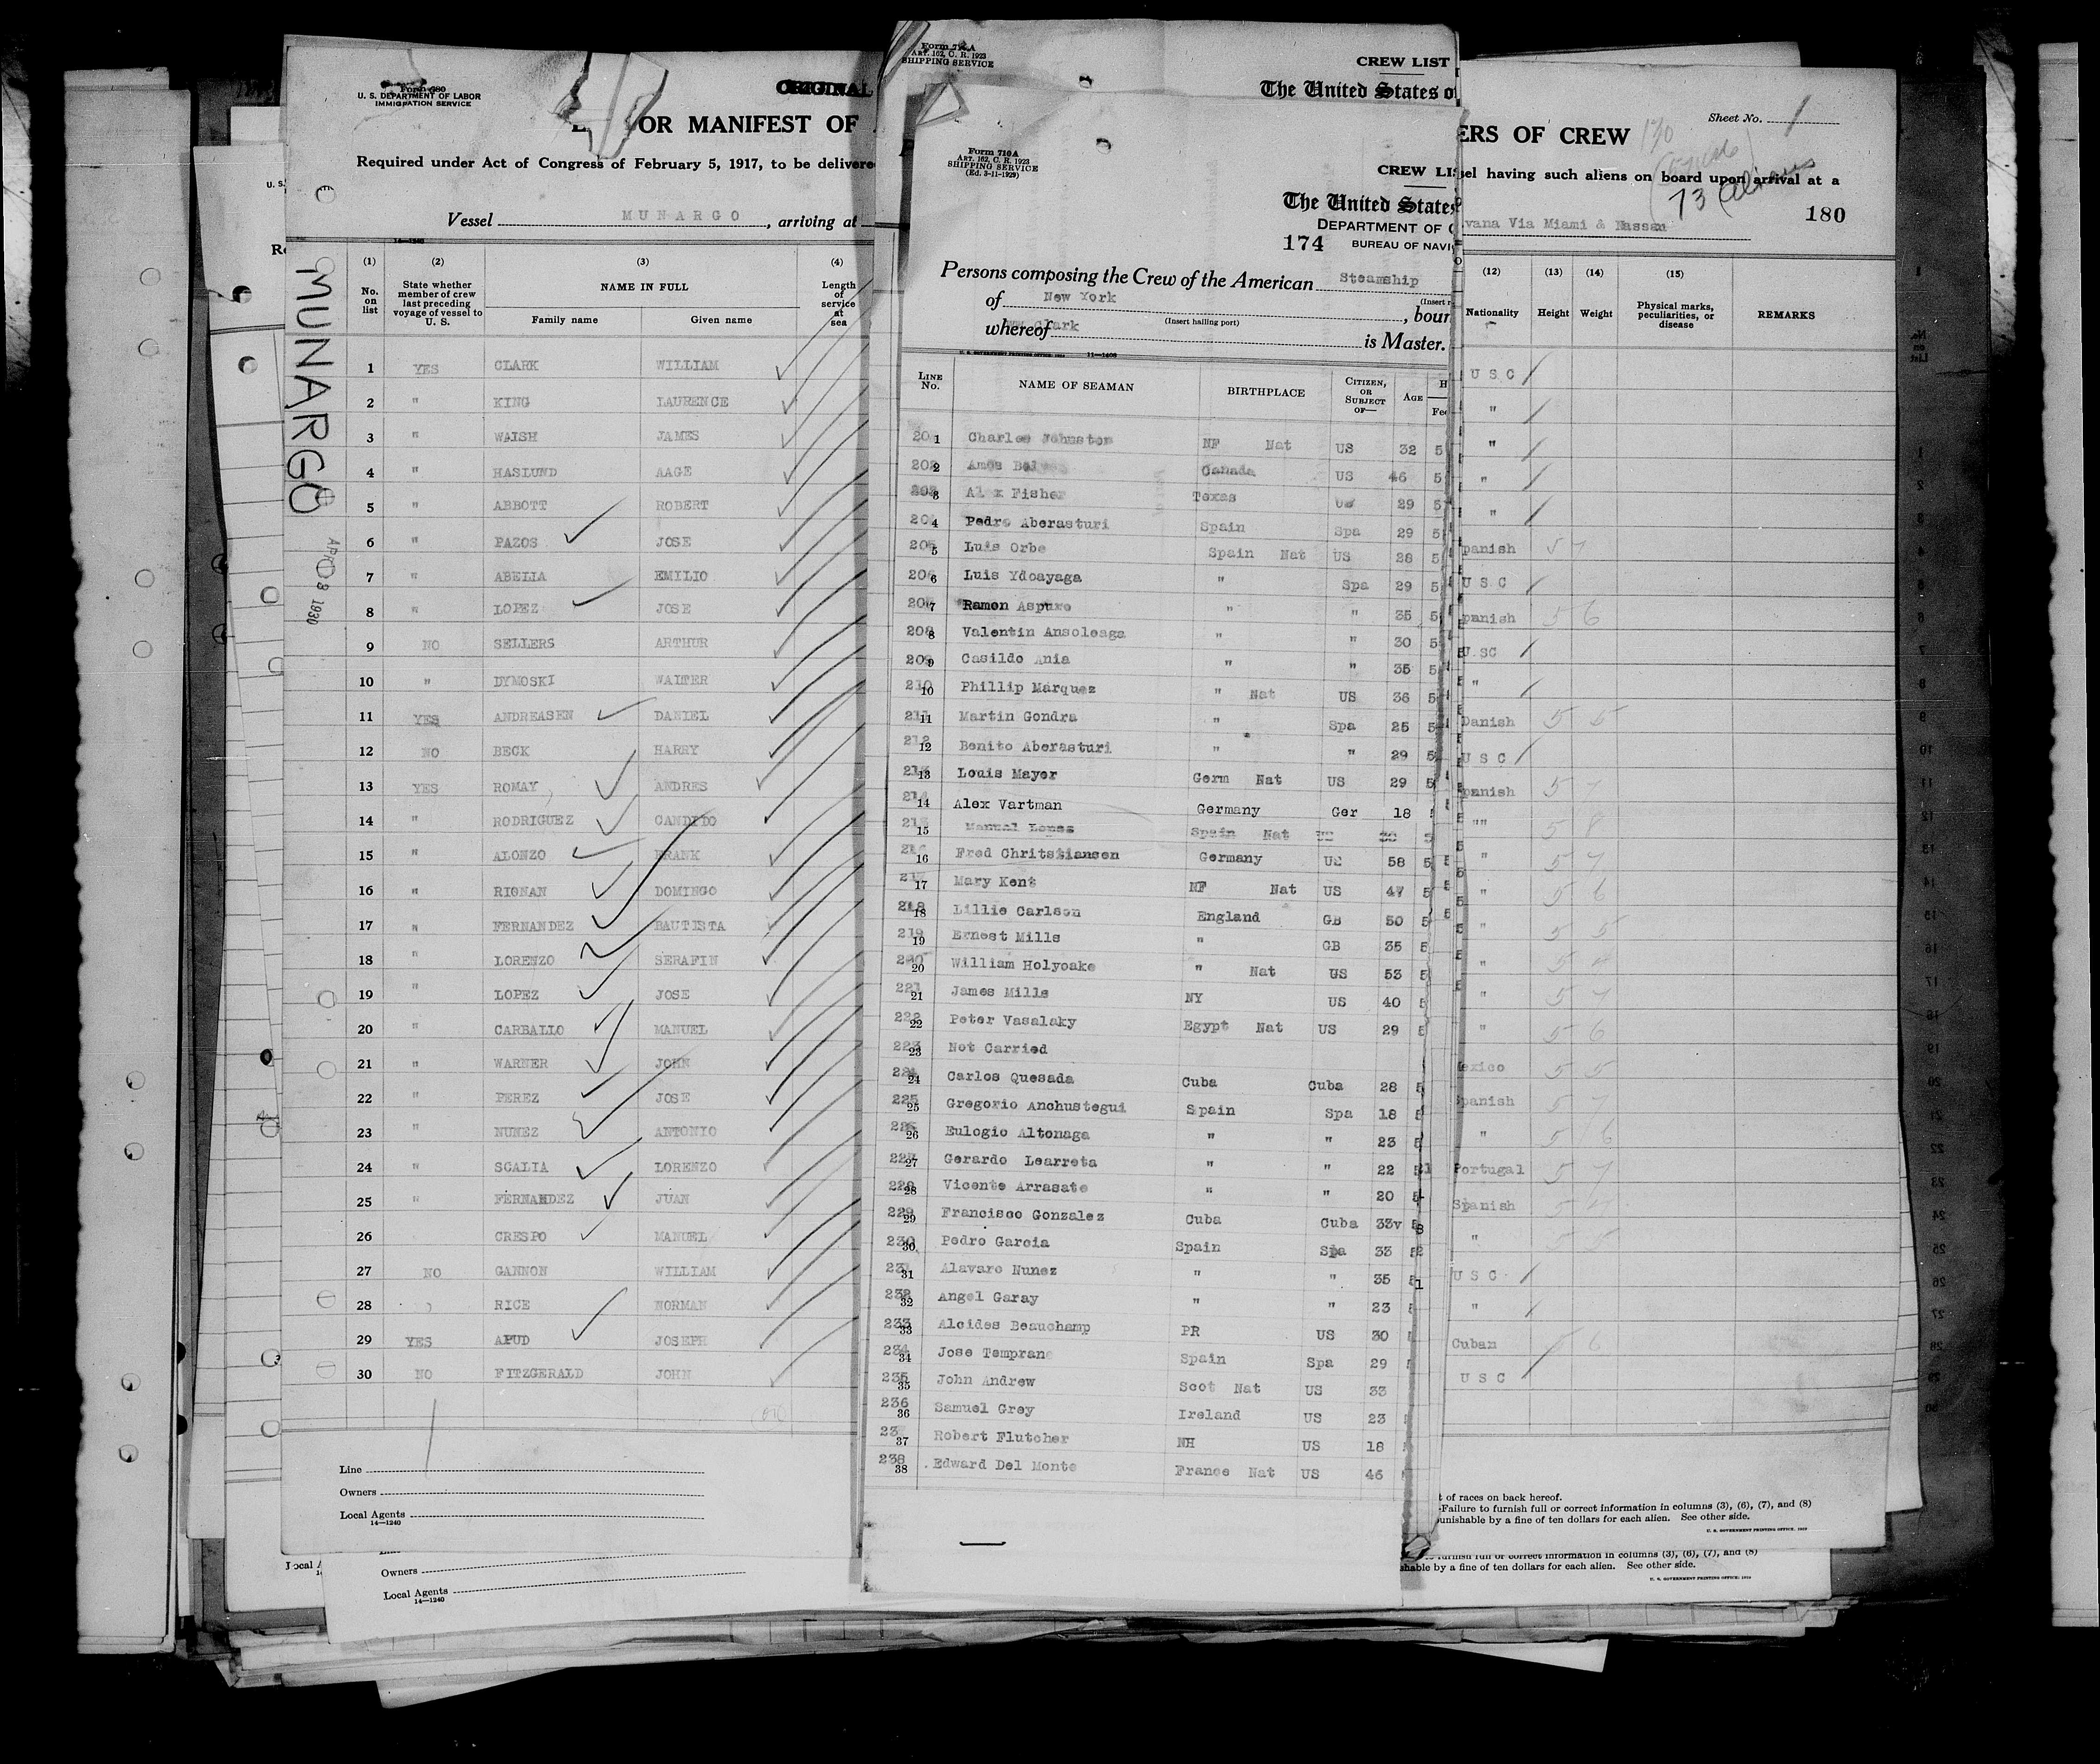 Form 680
U. S. DEPARTMENT OF LABOR
IMMIGRATION SERVICE
ORIGINAL
OR MANIFEST OF
Required under Act of Congress of February 5, 1917, to be delivere
Vessel MUNARGO, arriving at
14—1240
MUNARGO
APR 8 1930
(1) (2) (3) (4)
No. on list
State whether member of crew last preceding voyage of vessel to U. S.
NAME IN FULL
Family name Given name
Length of service at sea
1 YES CLARK WILLIAM
2 " KING LAURENCE
3 " WAISH JAMES
4 " HASLUND AAGE
5 " ABBOTT ROBERT
6 " PAZOS JOSE
7 " ABELIA EMILIO
8 " LOPEZ JOSE
9 NO SELLERS ARTHUR
10 " DYMOSKI WAITER
11 YES ANDREASEN DANIEL
12 NO BECK HARRY
13 YES ROMAY ANDRES
14 " RODRIGUEZ CANDIDO
15 " ALONZO FRANK
16 " RIONAN DOMINGO
17 " FERNANDEZ BAUTISTA
18 " LORENZO SERAFIN
19 " LOPEZ JOSE
20 " CARBALLO MANUEL
21 " WARNER JOHN
22 " PEREZ JOSE
23 " NUNEZ ANTONIO
24 " SCALIA LORENZO
25 " FERNANDEZ JUAN
26 CRESPO MANUEL
27 NO GANNON WILLIAM
28 RICE NORMAN
29 YES APUD JOSEPH
30 NO FITZGERALD JOHN
Line
Owners
Local Agents
14—1240
Owners
Local Agents
14—1240
Form 710A
ART. 162, C. R. 1923
SHIPPING SERVICE
CREW LIST
The United States o
Form 710A
ART. 162, C. R. 1923
SHIPPING SERVICE
(Ed. 3-11-1929)
CREW LI
The United States
DEPARTMENT OF C
174 BUREAU OF NAVI
Persons composing the Crew of the American Steamship
of New York, boun
(Insert hailing port)
whereof Clark is Master.
U. S. GOVERNMENT PRINTING OFFICE: 11—1406
LINE No. NAME OF SEAMAN BIRTHPLACE CITIZEN, OR SUBJECT OF— AGE
201 1 Charles Johnston NF Nat US 32 5
202 2 Amos Canada US 46 5
203 3 Alex Fisher Texas US 29 5
204 4 Pedro Aberasturi Spain Spa 29 5
205 5 Luis Orbe Spain Nat US 28 5
206 6 Luis Ydoayaga " Spa 29 5
207 7 Ramon Aspuro " " 35 5
208 8 Valentin Ansoleaga " " 30 5
209 9 Casildo Ania " " 35 5
210 10 Phillip Marquez " Nat US 36 5
211 11 Martin Gondra " Spa 25 5
212 12 Benito Aberasturi " " 29 5
213 13 Louis Mayer Germ Nat US 29 5
214 14 Alex Vartman Germany Ger 18
215 15 Manuel Lopez Spain Nat US 38 5
216 16 Fred Chritstiansen Germany US 58 5
217 17 Mary Kent NF Nat US 47 5
218 18 Lillie Carlson England GB 50 5
219 19 Ernest Mills " GB 35 5
220 20 William Holyoake " Nat US 53 5
221 21 James Mills NY US 40 5
222 22 Peter Vasalaky Egypt Nat US 29 5
223 23 Not Carried
224 24 Carlos Quesada Cuba Cuba 28 5
225 25 Gregorio Anchustegui Spain Spa 18 5
226 26 Eulogio Altonaga " " 23 5
227 27 Gerardo Learreta " " 22 5
228 28 Vicente Arrasate " " 20 5
229 29 Francisco Gonzalez Cuba Cuba 33v
230 30 Pedro Garcia Spain Spa 33
231 31 Alavaro Nunez " " 35
232 32 Angel Garay " " 23
233 33 Alcides Beauchamp PR US 30
234 34 Jose Temprano Spain Spa 29
235 35 John Andrew Scot Nat US 33
236 36 Samuel Grey Ireland US 23
237 37 Robert Flutcher NH US 18
238 38 Edward Del Monte France Nat US 46
Sheet No. 1
ERS OF CREW
130
sel having such aliens on board upon arrival at a
73 Aliens
180
vana Via Miami & Nassau
(12) (13) (14) (15)
Nationality Height Weight Physical marks, peculiarities, or disease REMARKS
U S C
"
"
"
"
panish 5 7
U S C
panish 5 6
U.SC
"
Danish 5 5
U S C
panish 5 7
"" 5 8
" 5 7
" 5 6
" 5 5
" 5 4
" 5 7
" 5 6
exico 5 5
panish 5 7
" 5 6
Portugal 5 7
Spanish 5 6
" 5 5
U S C
"
Cuban 5 6
U S C
t of races on back hereof.
-Failure to furnish full or correct information in columns (3), (6), (7), and (8)
unishable by a fine of ten dollars for each alien. See other side.
U. S. GOVERNMENT PRINTING OFFICE, 1929
to furnish full or correct information in columns (3), (6), (7), and (8)
shable by a fine of ten dollars for each alien. See other side.
U. S. GOVERNMENT PRINTING OFFICE: 1929